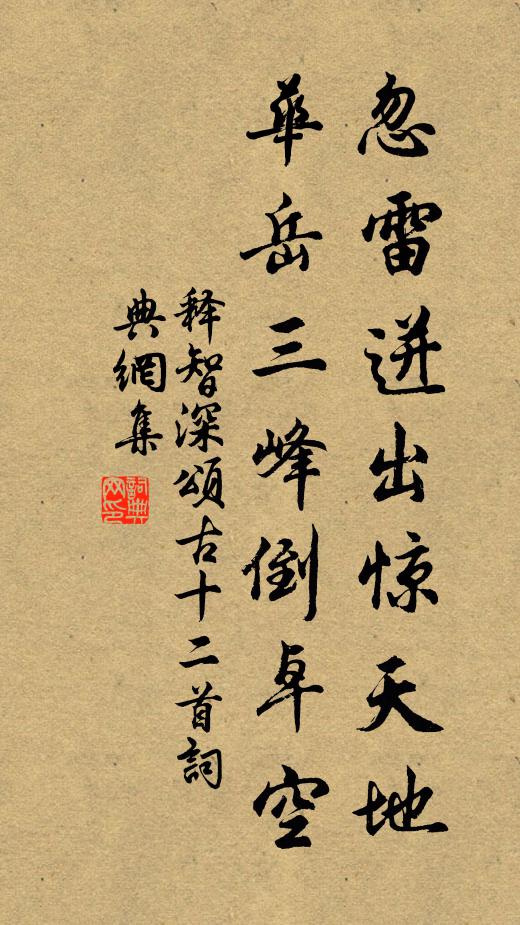 忽雷迸出惊天地
華岳三峰倒卓空
释智深頌古十二首詞
典網集
詞典网印